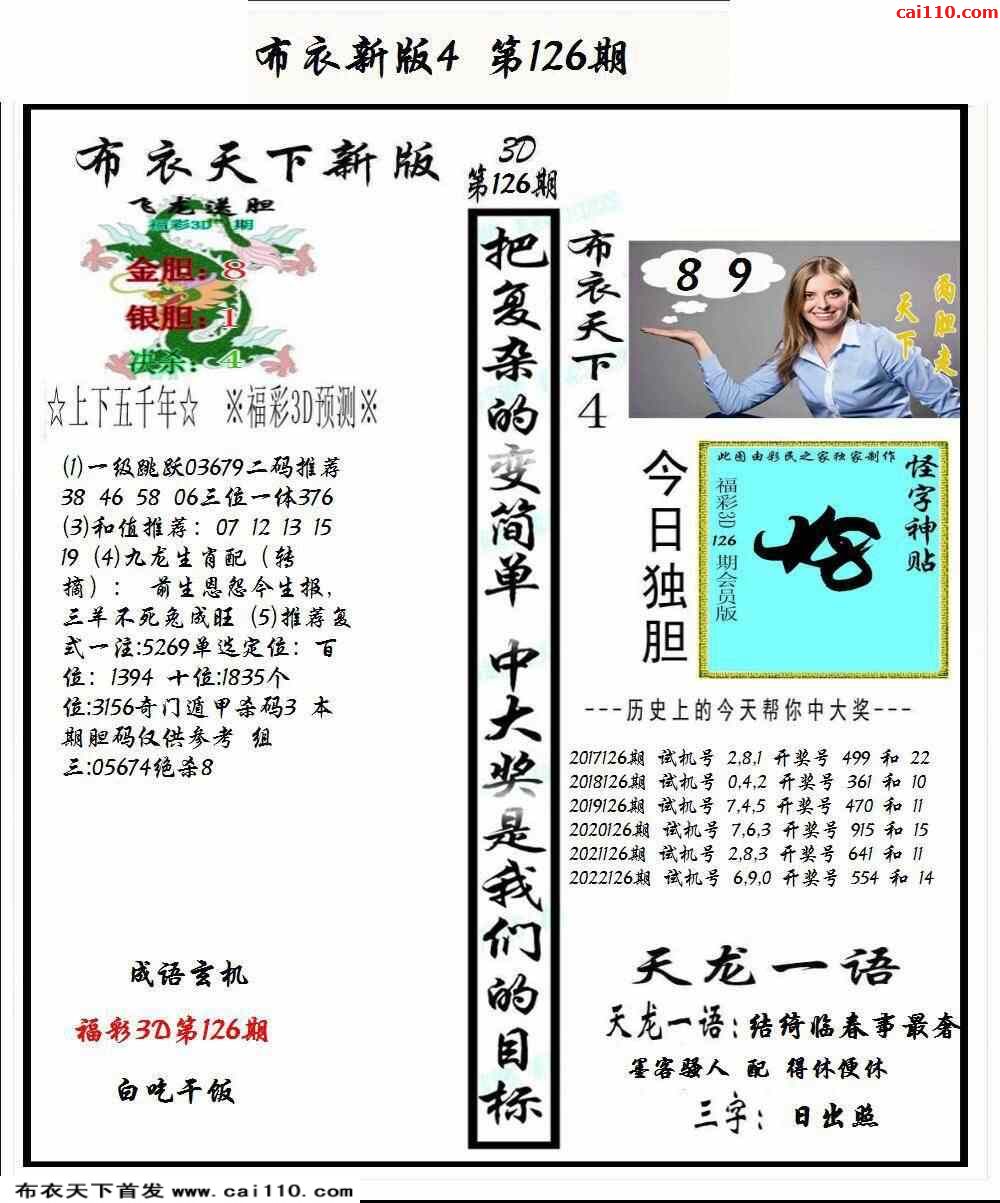 cai110.com
布衣新版4 第126期
布衣天下新版
飞龙送胆
福彩3D 期
金胆：8
银胆：1
决杀：4
☆上下五千年☆ ※福彩3D预测※
(1)一级跳跃03679二码推荐
38 46 58 06三位一体376
(3)和值推荐：07 12 13 15
19 (4)九龙生肖配（转
摘）： 前生恩怨今生报,
三羊不死兔成旺 (5)推荐复
式一注:5269单选定位：百
位：1394 十位:1835个
位:3156奇门遁甲杀码3 本
期胆码仅供参考 组
三:05674绝杀8
成语玄机
福彩3D第126期
白吃干饭
3D
第126期
把复杂的变简单 中大奖是我们的目标
布衣天下4
8 9
两胆走
天下
今日独胆
此图由彩民之家独家制作
怪字神贴
福彩3D 126 期会员版
---历史上的今天帮你中大奖---
2017126期 试机号 2,8,1 开奖号 499 和 22
2018126期 试机号 0,4,2 开奖号 361 和 10
2019126期 试机号 7,4,5 开奖号 470 和 11
2020126期 试机号 7,6,3 开奖号 915 和 15
2021126期 试机号 2,8,3 开奖号 641 和 11
2022126期 试机号 6,9,0 开奖号 554 和 14
天龙一语
天龙一语：结绮临春事最奢
墨客骚人 配 得休便休
三字： 日出照
布衣天下首发 www.cai110.com